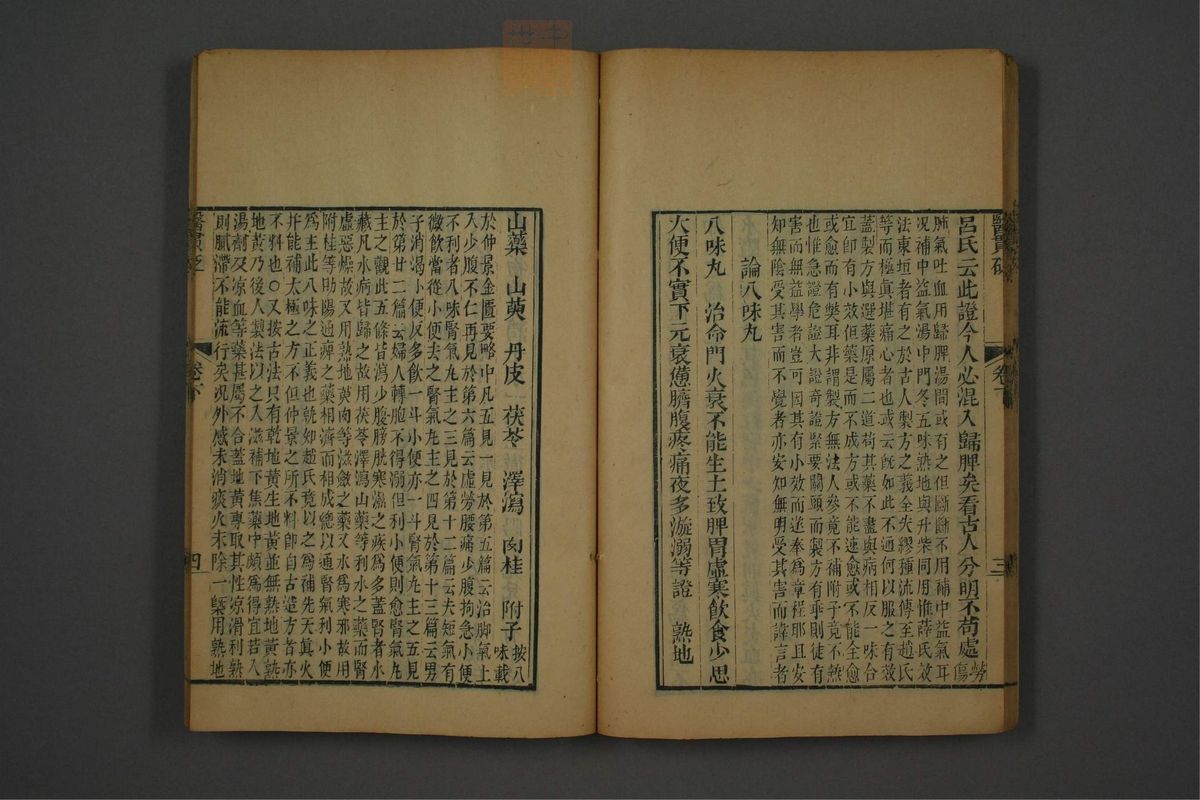 醫貫砭
卷下
三
呂氏云此證今人必混入歸脾矣看古人分明不苟處勞傷
肺氣吐血用歸脾湯間或有之但斷斷不用補中益氣耳
況補中益氣湯中門冬五味熟地與升柴同用惟薛氏效
法東垣者有之於古人製方之義全失繆種流傳至趙氏
等而極眞堪痛心者也或云旣如此不通何以服之有效
蓋製方與選藥原屬二道苟其藥不盡與病相反一味合
宜卽有小效但藥是而不成方或不能速愈或不能全愈
或愈而有獘耳非謂製方無法人參竟不補附子竟不熱
也惟急證危證大證奇證緊要關頭而製方有乖則徒有
害而無益學者豈可因其有小效而遂奉爲章程耶且安
知無陰受其害而不覺者亦安知無明受其害而諱言者
論八味丸
八味丸 治命門火衰不能生土致脾胃虛寒飲食少思
大便不實下元衰憊臍腹疼痛夜多漩溺等證 熟地
山藥 山萸 丹皮 茯苓 澤瀉 肉桂 附子 按八味載
於仲景金匱要略中凡五見一見於第五篇云治脚氣上
入少腹不仁再見於第六篇云虛勞腰痛少腹拘急小便
不利者八味腎氣丸主之三見於第十二篇云夫短氣有
微飲當從小便去之腎氣丸主之四見於第十三篇云男
子消渴小便反多飲一斗小便亦一斗腎氣丸主之五見
於第廿二篇云婦人轉胞不得溺但利小便則愈腎氣丸
主之觀此五條皆瀉少腹膀胱寒濕之疾爲多蓋腎者水
藏凡水病皆歸之故用茯苓澤瀉山藥等利水之藥而腎
虛惡燥故又用熟地萸肉等滋斂之藥又水爲寒邪故用
附桂等助陽通痺之藥相濟而相成總以通腎氣利小便
爲主此八味之正義也孰知趙氏竟以之爲補先天眞火
幷能補太極之方不但仲景之所不料卽自古造方者亦
不料也○又按古法只有乾地黃生地黃並無熟地黃熟
地黃乃後人製法以之入滋補下焦藥中頗爲得宜若入
湯劑及凉血等藥甚屬不合蓋地黃專取其性凉滑利熟
則膩滯不能流行矣況外感未消痰火未除一槩用熟地
醫貫砭
卷下
四